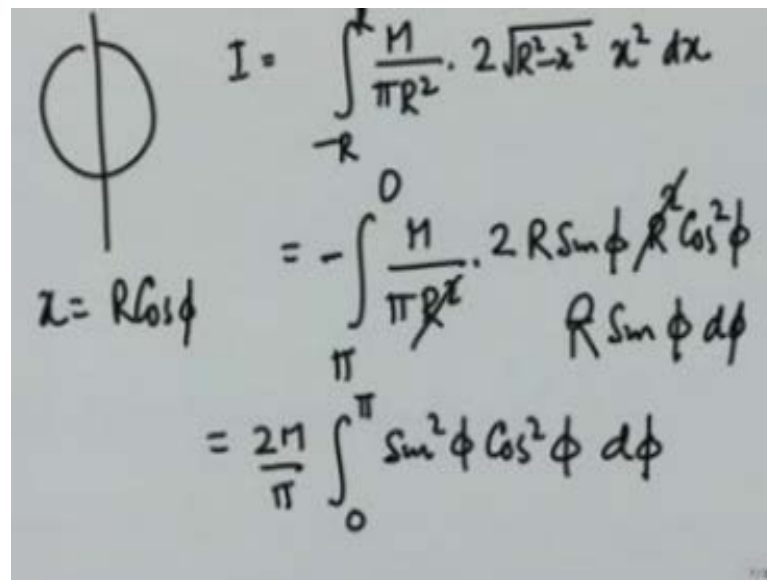 I = ∫_{-R}^{R} M/(πR²) · 2√(R²-x²) x² dx
= - ∫_{π}^{0} M/(πR²) · 2 R Sin ϕ R² Cos² ϕ
x = R Cos ϕ
R Sin ϕ dϕ
= 2M/π ∫_{0}^{π} Sin² ϕ Cos² ϕ dϕ